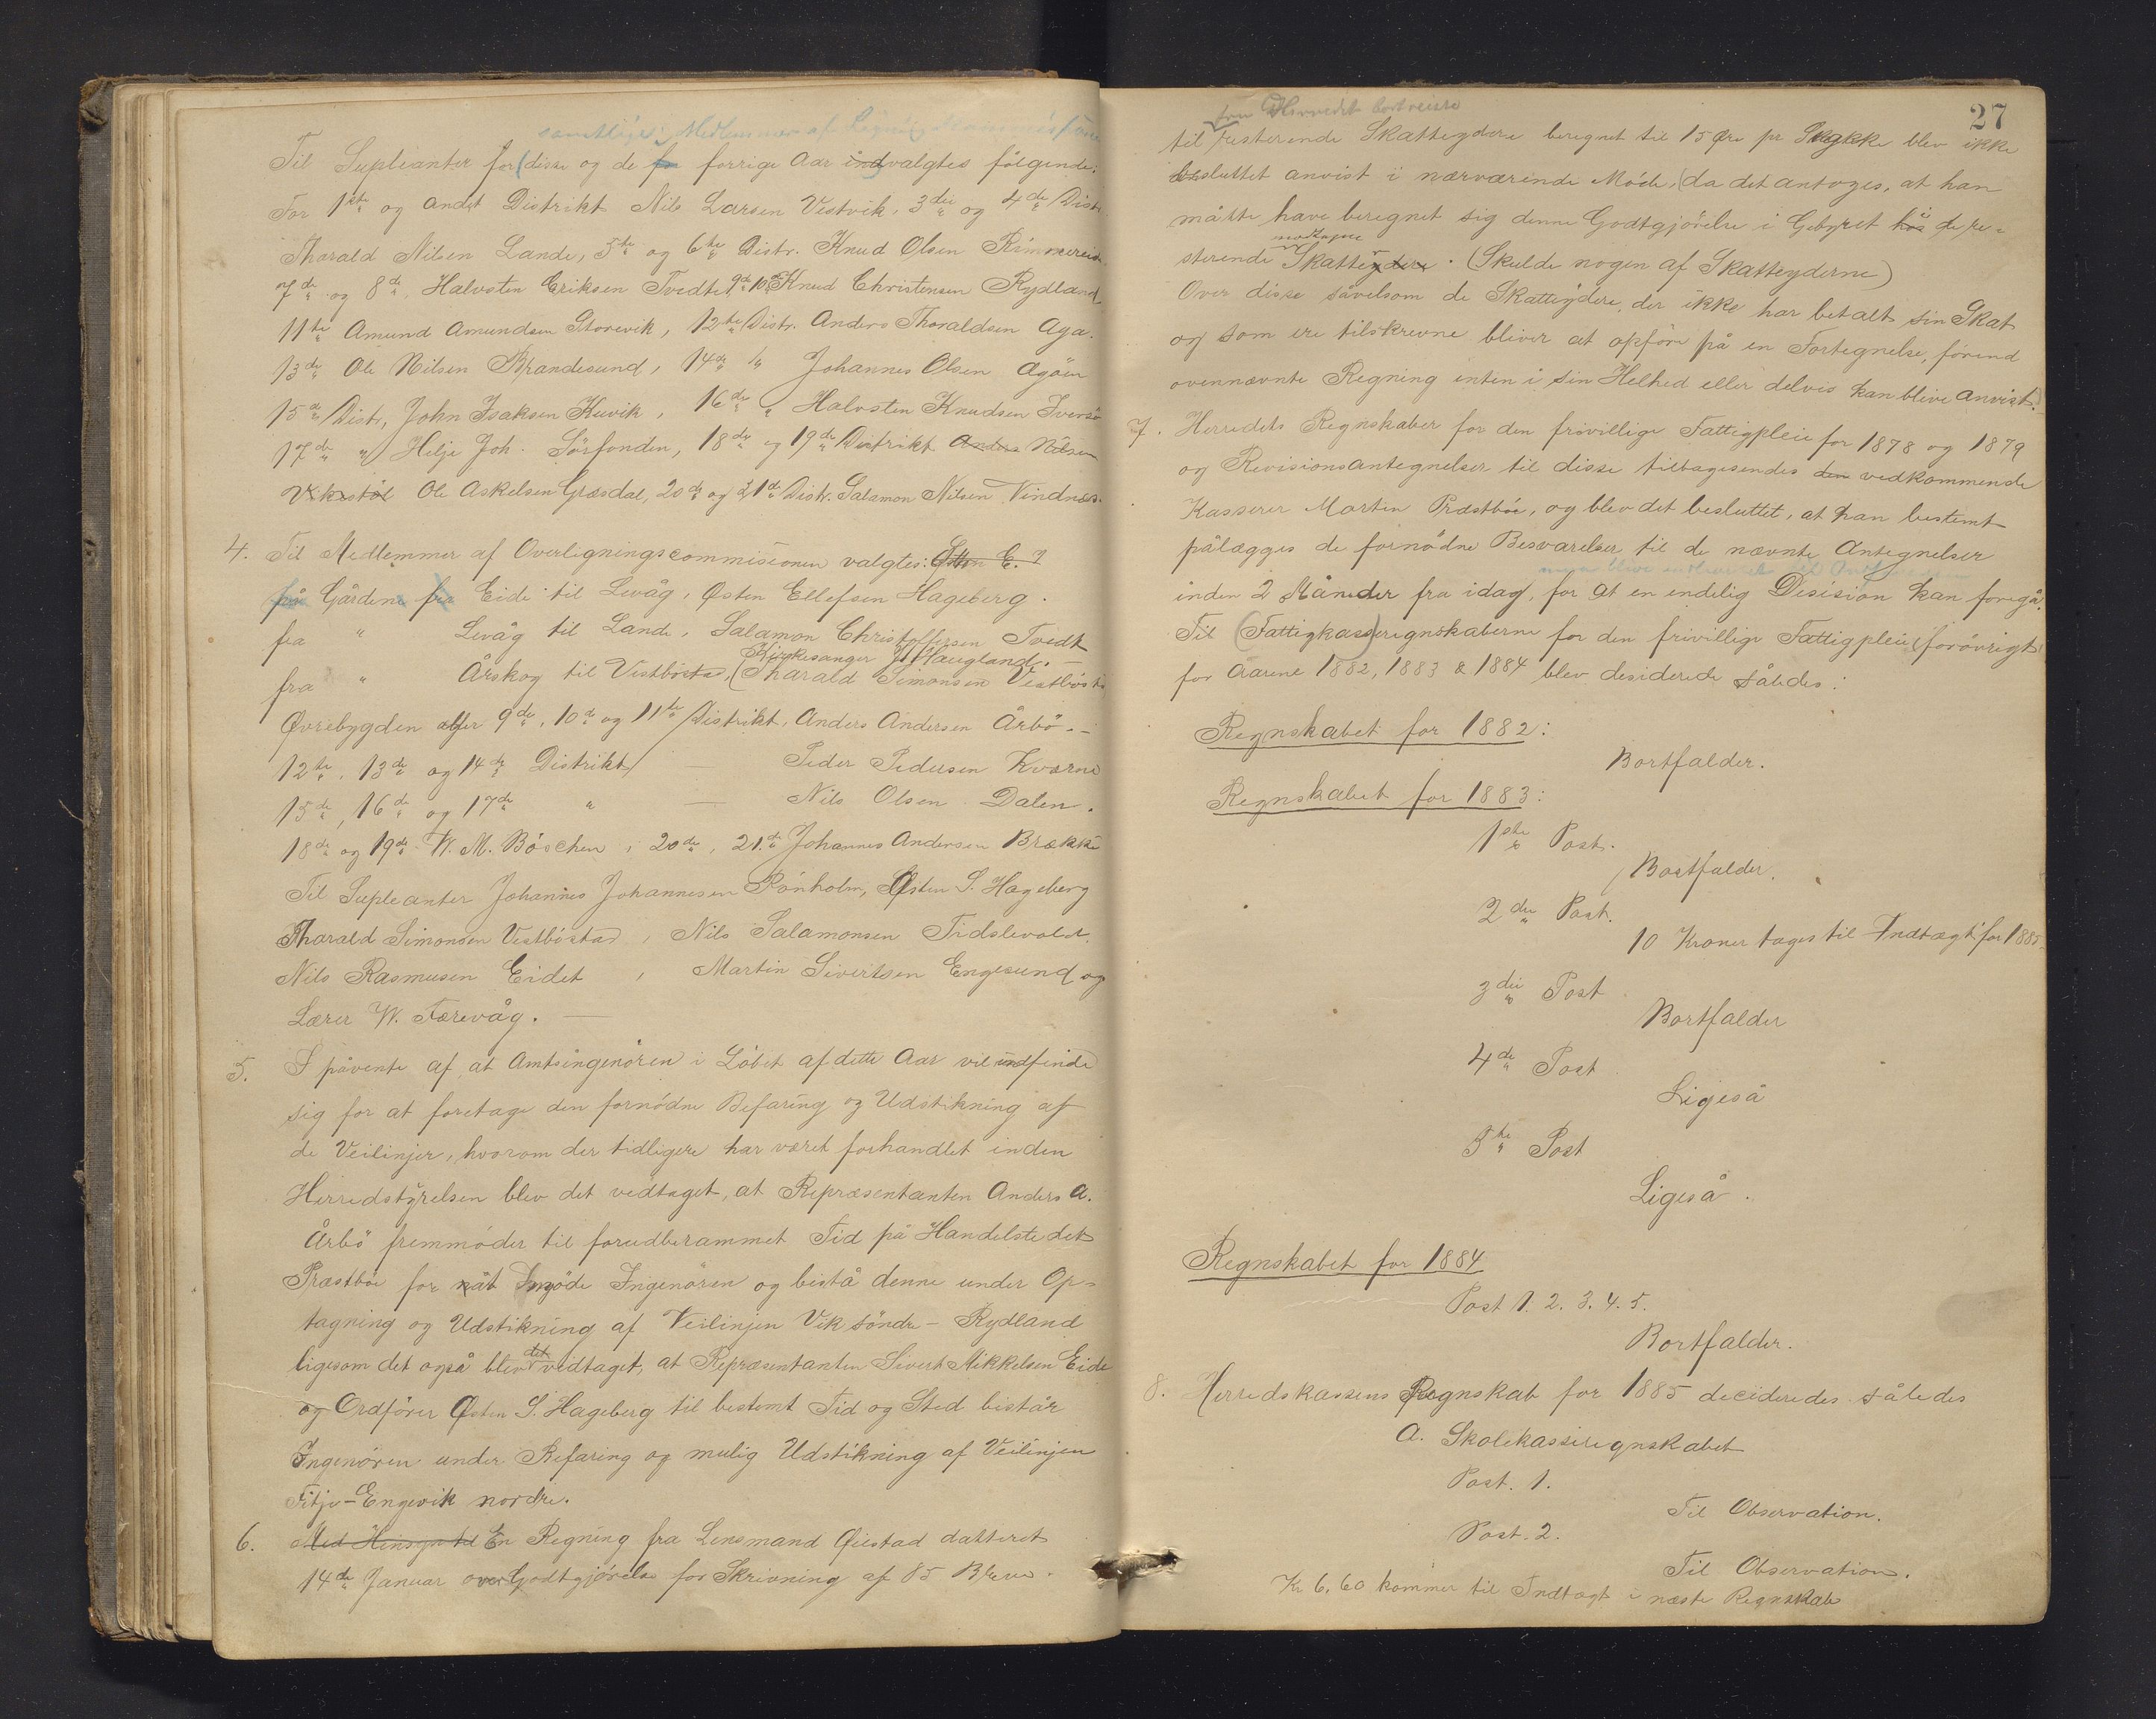 samtlige Medlemmer af
Til Suplianter for (disse og de fo forrige Aar indvalgtes fölgende:
For 1ste og andet Distrikt Nils Larsen Vestvik, 3die og 4de Distr.
Tharald Nilsen Lande, 5te og 6te Distr. Knud Olsen Rimmereid
7de og 8de, Halvsten Eriksen Tvedte, 9de 10de Knud Christensen Rydland
11te Amund Amundsen Storevik, 12te Distr. Anders Tharaldsen Aga.
13de Ole Nilsen Brandesund, 14de " Johannes Olsen Agöen
15de Distr, John Isaksen Kuvik, 16de " Halvsten Knudsen Iversö
17de " Helje Joh. Sörfonden, 18de og 19de Distrikt Anders Nilsen
Vikastöl Ole Askelsen Græsdal, 20de og 21de Distr. Salamon Nilsen Vindnæs.
4. Til Medlemmer af Overligningscommisionen valgtes: Østen E.
på Gårdene fra Eide til Levåg, Østen Ellefsen Hageberg.
fra " Levåg til Lande, Salamon Christoffersen Tvedt
Kirkesanger Haugland.
fra " Årskog til Vestböstad, (Tharald Simonsen Vestböst
Øvrebygden eller 9de, 10de og 11te Distrikt, Anders Andersen Årbö.
12te, 13de og 14de Distrikt — Peder Pedersen Kværne
15de, 16de og 17de " — Nils Olsen Dalen.
18de og 19de W. M. Böschen, 20de, 21de Johannes Andersen Brække
Til Supleanter Johannes Johannesen Rönholm, Østen S. Hageberg
Tharald Simonsen Vestböstad, Nils Salamonsen Tidslevold,
Nils Rasmusen Eidet, Martin Sivertsen Engesund og
Lærer W. Færevåg. —
5. I påvente af at Amtsingenören i Löbet af dette Aar vil indfinde
sig for at foretage den fornödne Befaring og Udstikning af
de Veilinjer, hvorom der tidligere har været forhandlet inden
Herredstyrelsen blev det vedtaget, at Repræsentanten Anders A.
Årbö fremmöder til forudberammet Tid på Handelstedet
Præstböe for at möde Ingenören og bistå denne under Op-
tagning og Udstikning af Veilinjen Vik söndre - Rydland
ligesom det også blev det vedtaget, at Repræsentanten Sivert Mikkelsen Eide
og Ordförer Østen S. Hageberg til bestemt Tid og Sted bistår
Ingenören under Befaring og mulig Udstikning af Veilinjen
Fitje-Engevik nordre.
6. Med Hensyn til En Regning fra Lensmand Øiestad datteret
14de Januar over Godtgjörelse for Skrivning af 85 Breve.
27
fra Herredet bortreiste
til resterende Skatteydere beregnet til 15 Øre pr Stykke blev ikke
besluttet anvist i nærværende Möde, (da det antoges, at han
måtte have beregnet sig denne Godtgjörelse i Gebyret hos de re-
sterende Skatteydere. (Skulde nogen af Skatteyderne)
Over disse såvelsom de Skatteydere, der ikke har betalt sin Skat
og som ere tilskrevne bliver at opföre på en Fortegnelse, förend
ovennævnte Regning enten i sin Helhed eller delvis kan blive anvist.
7. Herredets Regnskaber for den frivillige Fattigpleie for 1878 og 1879
og Revisionsantegnelser til disse tilbagesendes den vedkommende
Kasserer Morten Præstböe, og blev det besluttet, at han bestemt
pålægges de fornödne Besvarelser til de nævnte Antegnelser
inden 2 Måneder fra idag, for at en endelig Desision kan foregå.
Til (Fattigkasseregnskaberne for den frivillige Fattigpleie (forövrigt)
for Aarene 1882, 1883 & 1884 blev desiderede således:
Regnskabet for 1882:
Bortfalder.
Regnskabet for 1883:
1ste Post.
Bortfalder.
2den Post.
10 Kroner tages til Indtægt for 1885.
3die Post
Bortfalder
4de Post
Ligeså
5te Post
Ligeså.
Regnskabet for 1884
Post 1. 2. 3. 4. 5.
Bortfalder.
8. Herredskassens Regnskab for 1885 decideredes således
A. Skolekasseregnskabet
Post. 1.
Til Observation.
Post. 2.
Til Observation.
Kr 6,60 kommer til Indtægt i næste Regnskab